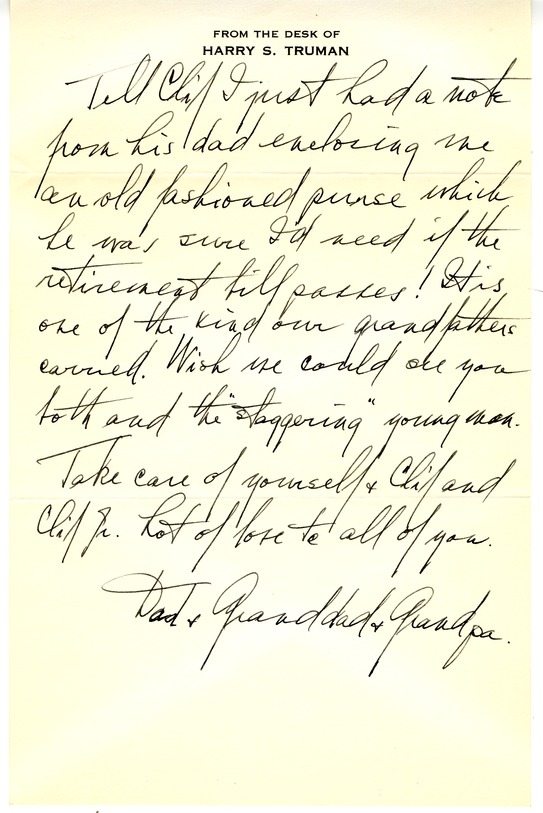 FROM THE DESK OF
HARRY S. TRUMAN
Tell Clif I just had a note
from his dad enclosing me
an old fashioned purse which
he was sure I'd need if the
retirement bill passes! It is
one of the kind our grandfathers
carried. Wish we could see you
both and the "staggering" young man.
Take care of yourself & Clif and
Clif Jr. Lot of love to all of you.
Dad & Granddad & Grandpa.